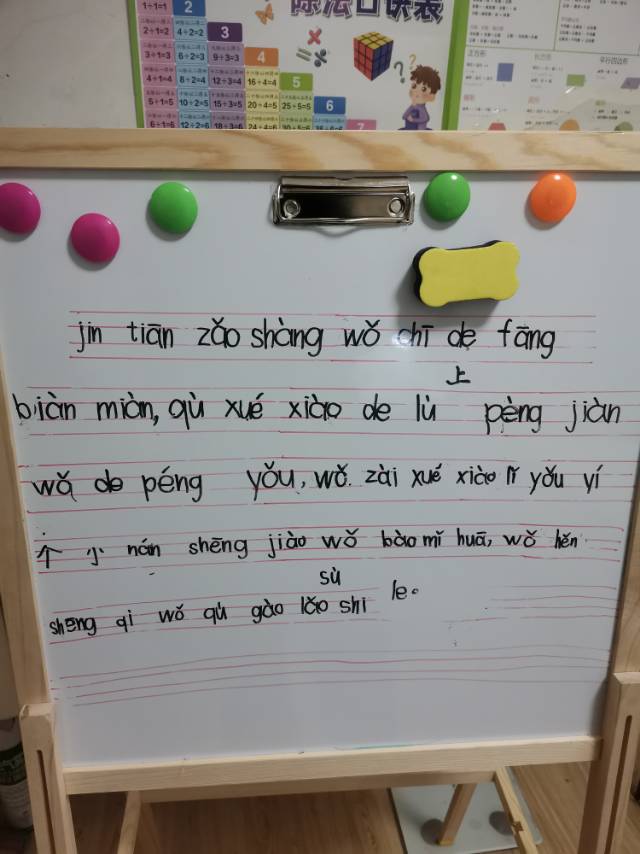 除法口诀表
1÷1=1 2
2÷1=2 4÷2=2 3
3÷1=3 6÷2=3 9÷3=3 4
4÷1=4 8÷2=4 12÷3=4 16÷4=4 5
5÷1=5 10÷2=5 15÷3=5 20÷4=5 25÷5=5 6
6÷1=6 12÷2=6 18÷3=6 24÷4=6 30÷5=6 7
正方形 长方形 平行四边形
jin tiān zǎo shàng wǒ chī de fāng
上
biàn miàn, qù xué xiào de lù pèng jiàn
wǒ de péng yǒu, wǒ. zài xué xiào lǐ yǒu yí
个 小 nán shēng jiào wǒ bào mǐ huā, wǒ hěn
sù
shēng qì wǒ qù gào lǎo shi le。